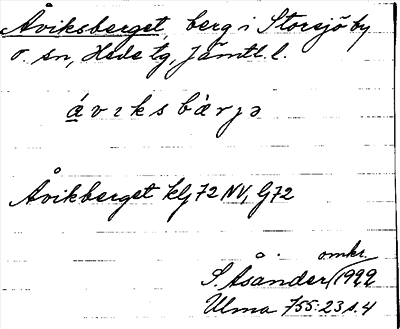 Åviksberget, berg i Storsjö by
o. sn, Hede tg, Jämtl. l.
á v ɪ k s b à r j ə
Åvikberget klg 72 NV, G72
omkr.
S. Åsander 1922
Ulma 755:23 s. 4